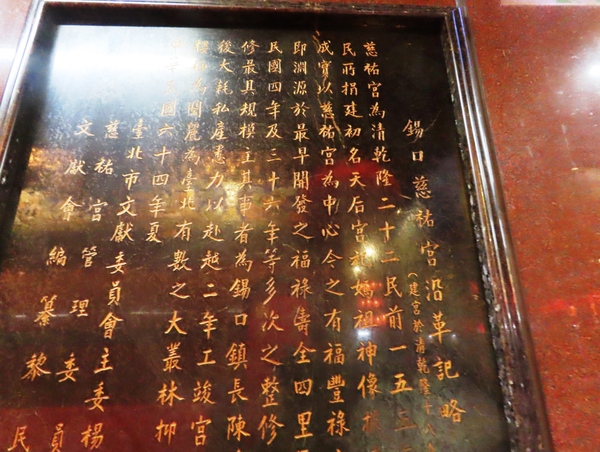 錫口慈祐宮沿革記略
(建宮於清乾隆十八
慈祐宮為清乾隆二十二民前一五三
民所捐建初名天后宮祀媽祖神像
成實以慈祐宮為中心今之有福豐祿
即淵源於最早開發之福祿壽全四里
民國四年及三十六年等多次之整修
修最具規模主其事者為錫口鎮長陳
後大耗私產悉力以赴越二年工竣宮
為臺北有數之大叢林抑
國六十四年夏
臺北市文獻委員會主委楊
慈祐宮管理委員
文獻會編纂黎民